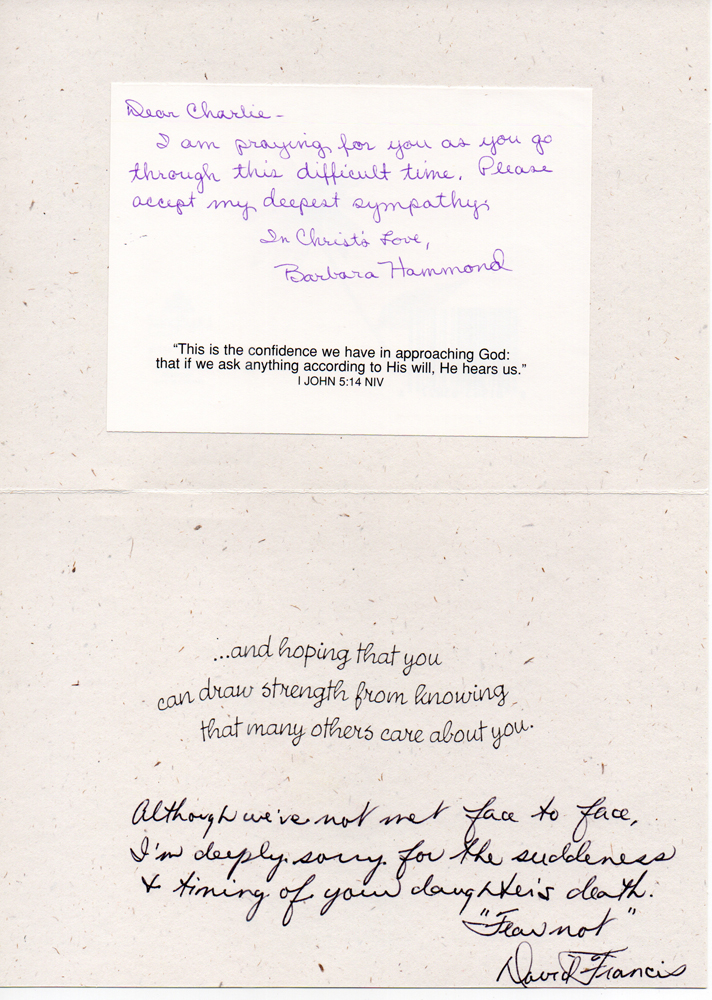 Dear Charlie -
I am praying for you as you go
through this difficult time. Please
accept my deepest sympathy.
In Christ's Love,
Barbara Hammond
“This is the confidence we have in approaching God:
that if we ask anything according to His will, He hears us.”
I JOHN 5:14 NIV
...and hoping that you
can draw strength from knowing
that many others care about you.
Although we've not met face to face,
I'm deeply sorry for the suddeness
& timing of your daughter's death.
"Fear not"
David Francis